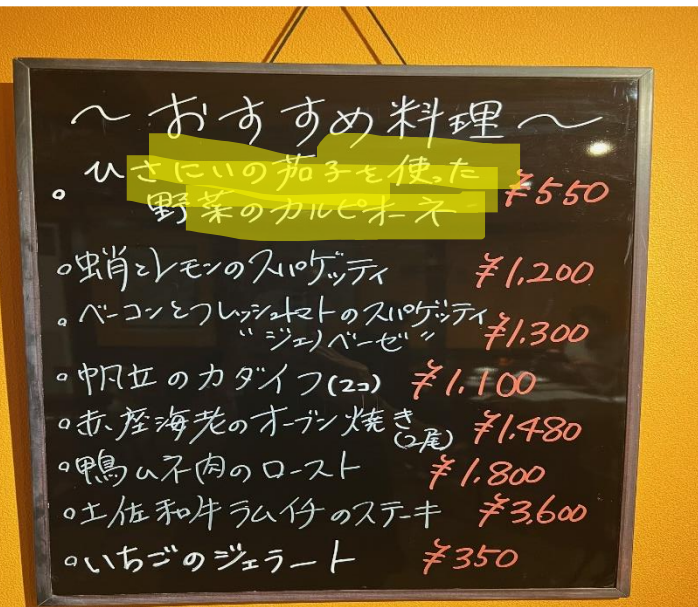 ～おすすめ料理～
。ひさにいの茄子を使った
野菜のカルピオーネ ¥550
。蛸とレモンのスパゲッティ ¥1,200
。ベーコンとフレッシュトマトのスパゲッティ
"ジェノベーゼ" ¥1.300
。帆立のカダイフ(2コ) ¥1.100
。赤座海老のオーブン焼き(2尾) ¥1.480
。鴨ムネ肉のロースト ¥1.800
。土佐和牛ラムイチのステーキ ¥3.600
。いちごのジェラート ¥350